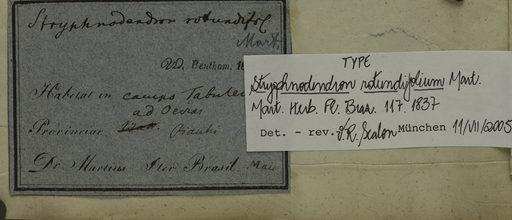 Stryphnodendron rotundifol
Mart.
Vid. Bentham. 18
Habitat in campis Tabulei
ad Oeiras
Provinciae Piauhi
Dr. Martius Iter Brasil. Maio
TYPE
Stryphnodendron rotundifolium Mart.
Mart. Herb. Fl. Bras. 117. 1837
Det. - rev. R. Scalon München 11/VII/2005